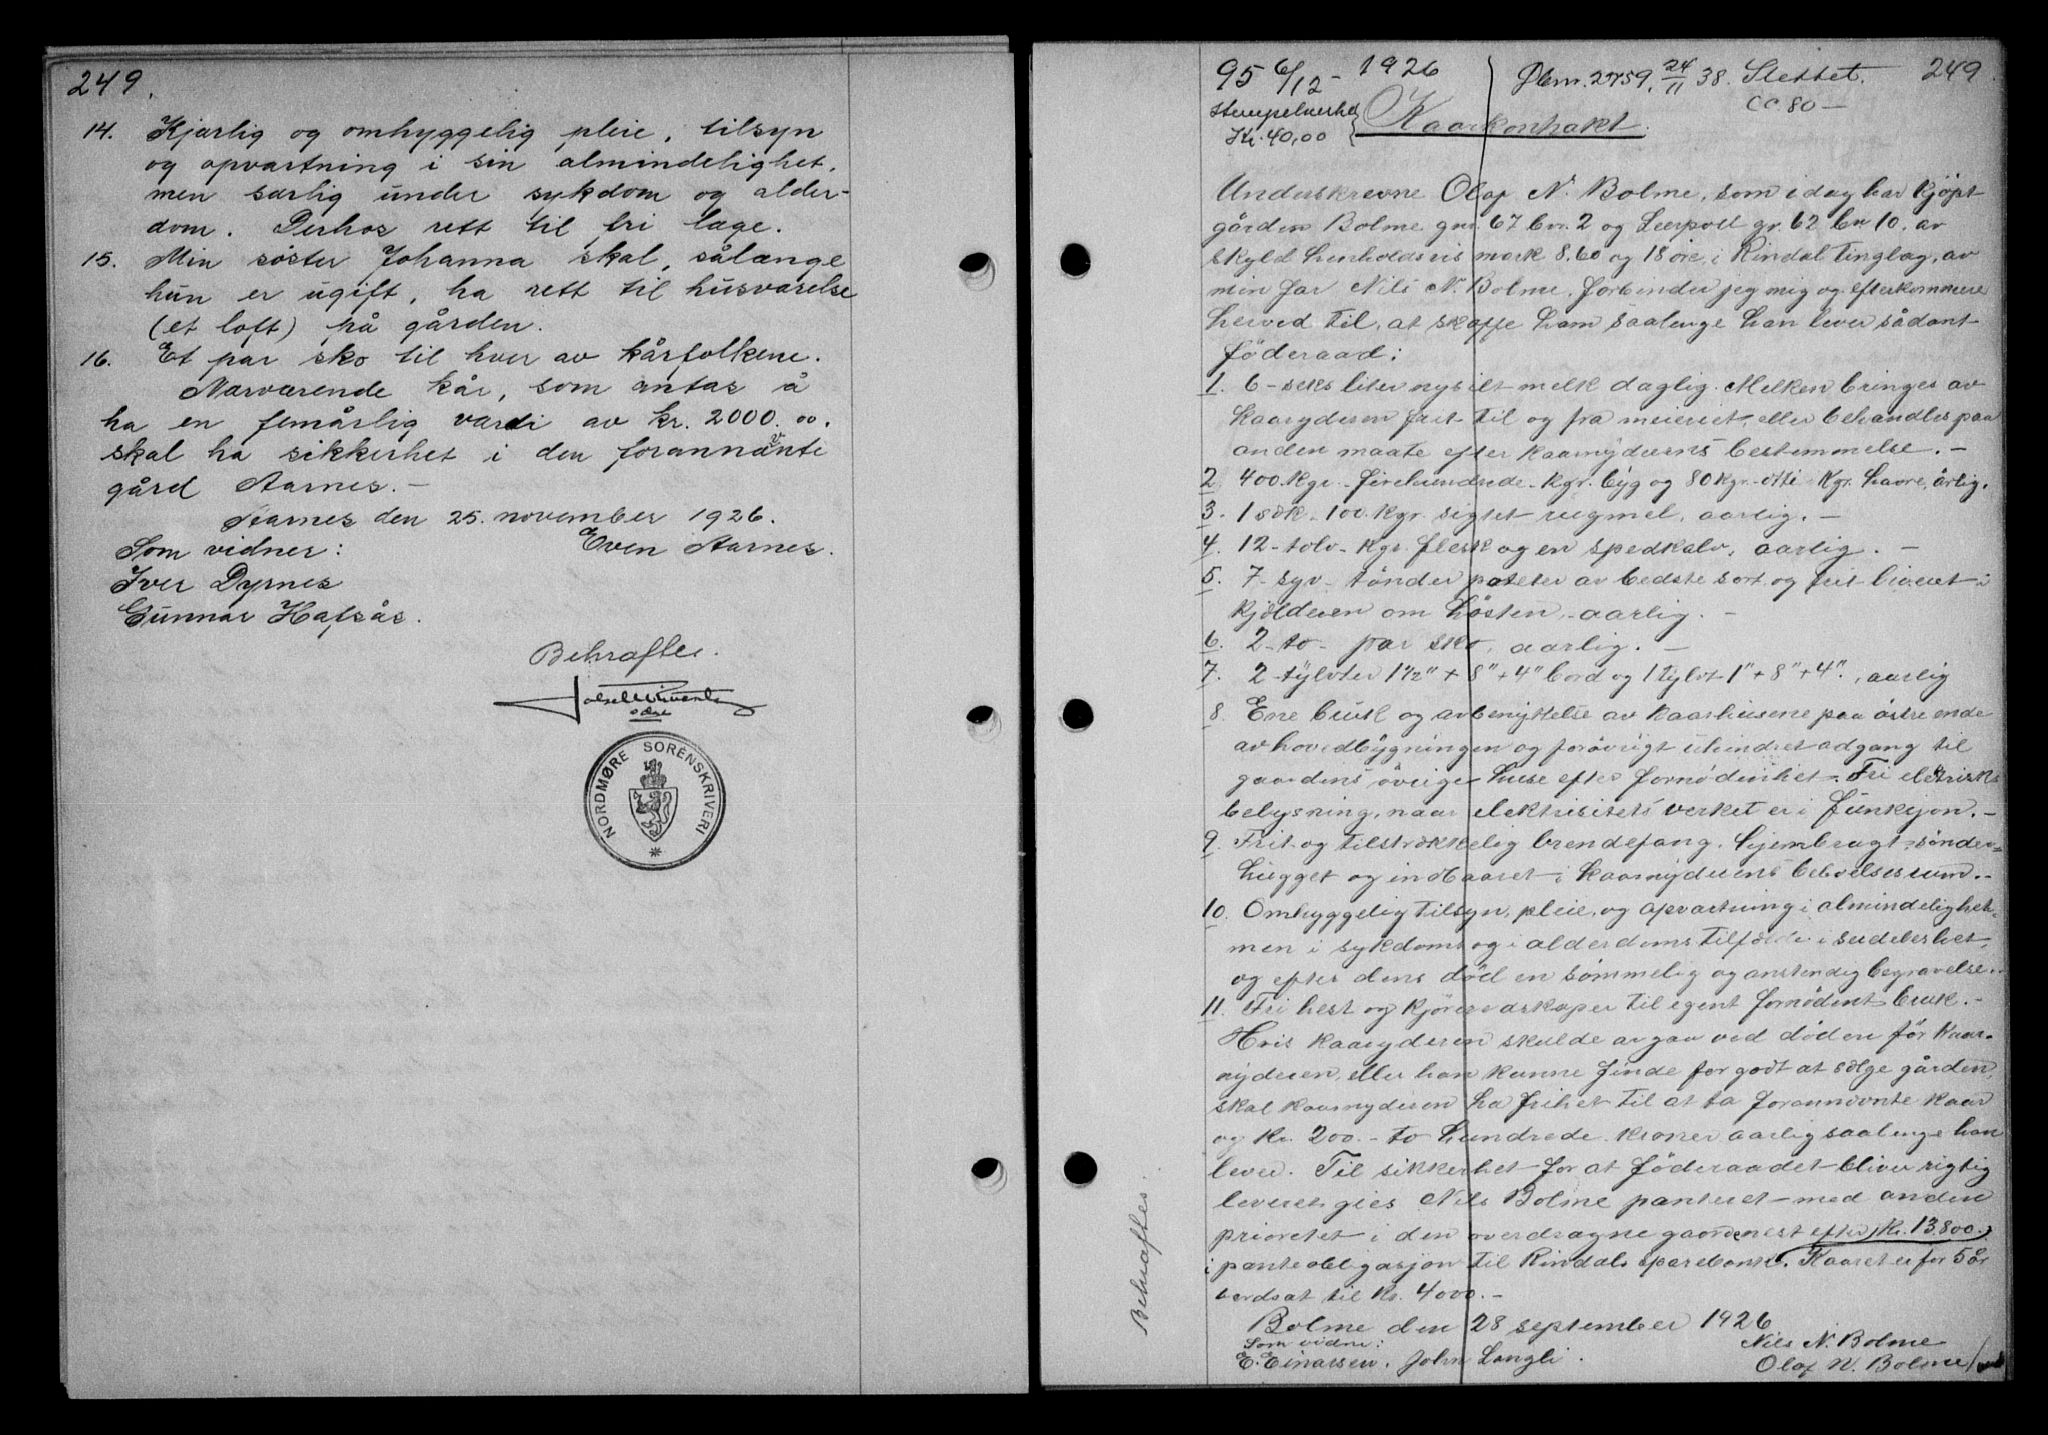 249.
14. Kjærlig og omhyggelig pleie, tilsyn
og opvartning i sin almindelighet,
men særlig under sykdom og alder-
dom. Derhos rett til fri lage.
15. Min söster Johanna skal, sålænge
hun er ugift, ha rett til husværelse
(et loft) på gården.
16. Et par sko til hver av kårfolkene.
Nærværende kår, som antas å
ha en femårlig værdi av kr. 2000.00.
skal ha sikkerhet i den forannævnte
gård Aarnes.-
Aarnes den 25. november 1926.
Som vidner: Even Aarnes.
Iver Dyrnes
Gunnar Hafsås.
Bekræftes.
NORDMØRE SORENSKRIVERI
95 6/12 - 1926 Dbnr. 2759, 24/11 38. Slettet. 249.
CC 80-
Stempelverd
Kr. 40,00
Kaarkontrakt.
Underskrevne Olaf N. Bolme, som idag har kjöpt
gården Bolme gnr. 67 bnr. 2 og Leerpoll gr. 62 bn 10. av
skyld henholdsvis mark 8,60 og 18 öre, i Rindal tinglag, av
min far Nils N. Bolme, forbinder jeg mig og efterkommere
herved til, at skaffe ham saalenge han lever sådant
föderaad:
1. 6-seks liter nysilt melk daglig. Melken bringes av
kaaryderen frit til og fra meieriet, eller behandles paa
anden maate efter kaarnyderens bestemmelse.-
2. 400 kgr.- firehundrede- kgr. byg og 80 kgr.-otti- kgr. havre, årlig.
3. 1 sæk- 100 kgr. sigtet rugmel, aarlig.-
4. 12-tolv- kgr. flesk og en spedkalv, aarlig.-
5. 7-syv- tönder poteter av bedste sort og frit leveret i
kjælderen om hösten,- aarlig.-
6. 2-to- par sko, aarlig.-
7. 2 tylvter 1 1/2" + 8" + 4" bord og 1 tylvt 1" + 8" + 4"., aarlig
8. Ene bruk og avbenyttelse av kaarhusene paa östre ende
av hovedbygningen og forövrigt uhindret adgang til
gaardens övrige huse efter fornödenhet. Fri elektrisk
belysning, naar elektrisitetsverket er i funksjon.-
9. Frit og tilstrækkelig brendefang. hjembragt, sönder-
hugget og indbaaret i kaarnyderens beboelsesrum.-
10. Omhyggelig tilsyn, pleie, og opvartning i almindelighet,
men i sykdoms og i alderdoms tilfælde i serdeleshet,
og efter dens död en sömmelig og anstendig begravelse.-
11. Fri hest og kjöreredskaper til egent fornödent bruk.-
Hvis kaaryderen skulde avgaa ved döden för kaar-
nyderen, eller han kunne finde for godt at sælge gården,
skal kaarnyderen ha frihet til at ta forannævnte kaar
og kr. 200.- to hundrede kroner aarlig saalenge han
lever. Til sikkerhet for at föderaadet bliver rigtig
leveret gies Nils Bolme panteret med anden
prioretet i den overdragne gaard nest efter kr. 13.800.-
i panteobligasjon til Rindals sparebank. Kaaret er for 5 år
verdsat til kr. 4000.-
Bolme den 28 september 1926
Som vidne: Nils N. Bolme
E. Einarsen. John Langli. Olaf N. Bolme
Bekræftes.